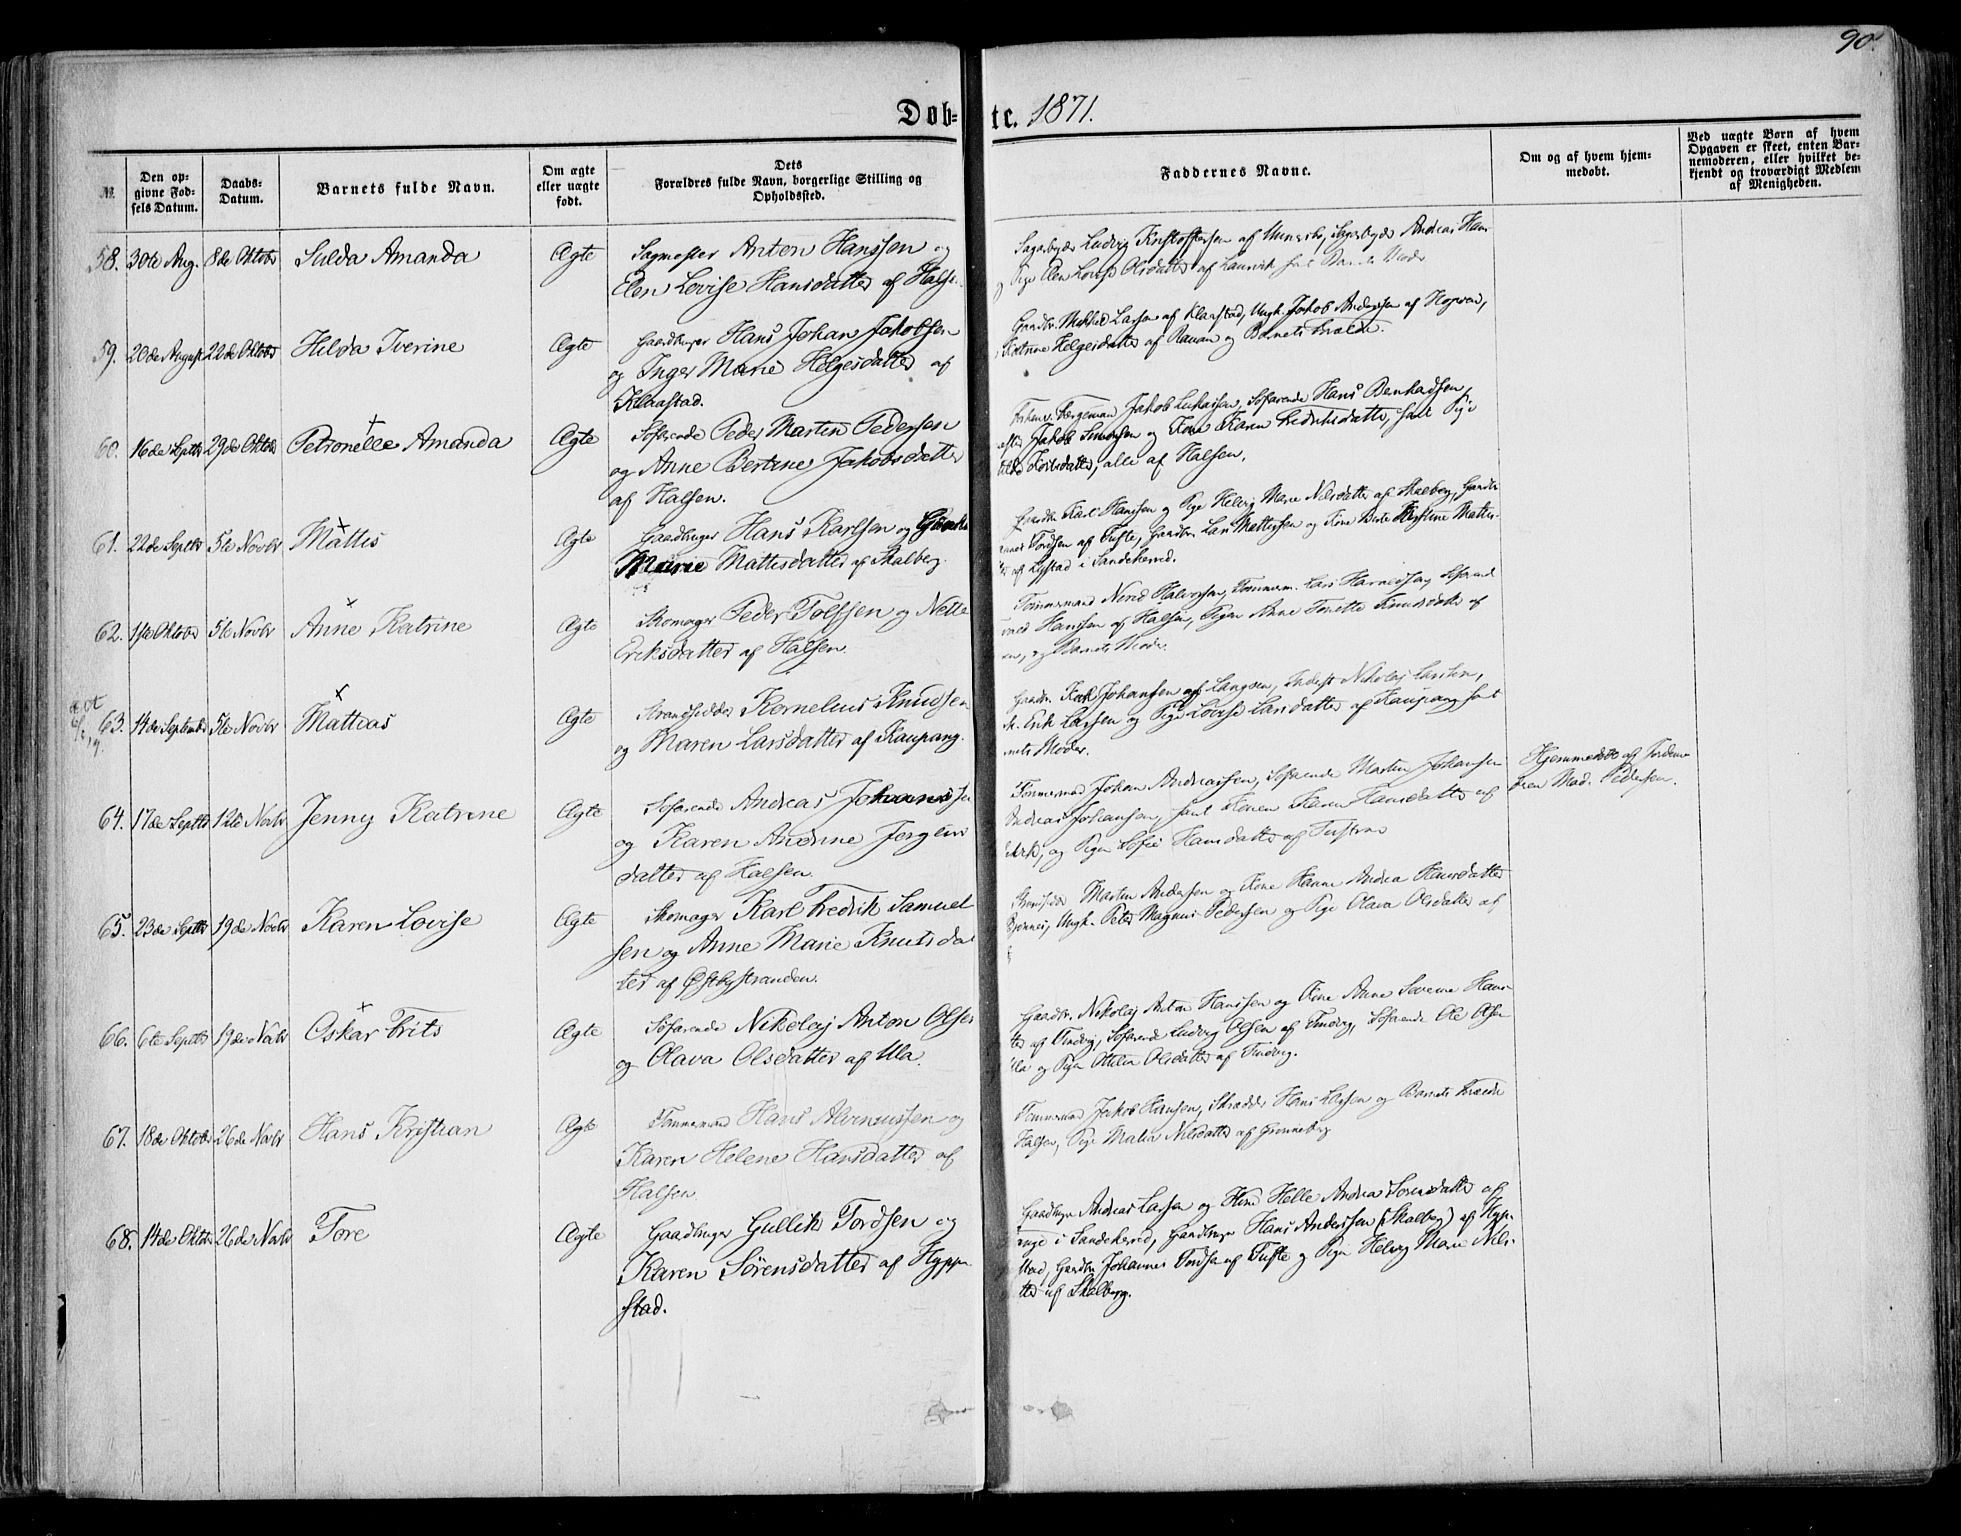 90.
Døb-te. 1871.
№.
Den op-
givne Fød-
sels Datum.
Daabs-
Datum.
Barnets fulde Navn.
Om ægte
eller uægte
født.
Dets
Forældres fulde Navn, borgerlige Stilling og
Opholdssted.
Faddernes Navne.
Om og af hvem hjem-
medøbt.
Ved uægte Børn af hvem
Opgaven er skeet, enten Bar-
nemoderen, eller hvilket be-
kjendt og troværdigt Medlem
af Menigheden.
58. 30te Aug. 8de Oktober Hulda Amanda Ægte Sagmester Anton Hanssen og
Elen Lovise Hansdatter af Halse.
Ludvig Kristoffersen af Andreas Han
Pige Elen Lovise Olsdatter af Laurvik, samt Moder
59. 20de August 22de Oktober Hilda Iverine Ægte Gaardbruger Hans Johan Jakobsen
og Inger Marie Helgesdatter af
Klaastad.
Gaardbr. Mikkel Larsen af Klaastad, Ungk. Jakob Anderssen af
Katrine Helgesdatter af Rauan og Barnets Fader.
60. 16de Septbr 29de Oktober Petronelle Amanda Ægte Søfarende Peder Martin Pedersen
og Anne Bertine Jakobsdatter
af Halsen.
Færgemand Jakob Lukassen, Søfarende Hans
Jakob Simonsen og Kone Karen Fredriksdatter, samt Pige
alle af Halsen.
61. 22de Septbr 5te Novbr Mattis Ægte Gaardbruger Hans Karlsen og
Marie Mattisdatter af Skalberg.
Gaardbr. Karl Hanssen og Pige Helvig Marie Nilsdatter af Skalberg, Gaardbr.
Tordsen af Tufte, Gaardbr. Lars Mattissen og Kone Berte Kristine Mattis-
af Lystad i Sandeherred.
62. 1ste Oktober 5te Novbr Anne Katrine Ægte Skomager Peder Tolfsen og Nette
Eriksdatter af Halsen.
Tømmermand Halvorsen, Tømmerm. Lars Søfarend
Hanssen af Halsen, Pigen Anne Knudsdatter af
og Barnets Moder.
63. 14de September 5te Novbr Mattias Ægte Strandsidder Kornelius Knudsen
og Maren Larsdatter af Kaupang.
Gaardbr. Johanssen af Langøen, Inderst Nikolaj Larssen,
Erik Larssen og Pige Lovise Larsdatter af Kaupang, samt
Moder.
64. 17de Septbr 12te Novbr Jenny Katrine Ægte Søfarende Andreas
og Karen Andrine Jørgens
datter af Halsen.
Tømmermand Johan Andreassen, Søfarende Martin Johansen
Andreas Johansen, samt Konen Karen Hansdatter af
og Pigen Sofie Hansdatter af
Hjemmedøbt af Jordemo
deren Mad. Pedersen.
65. 23de Septbr 19de Novbr Karen Lovise Ægte Skomager Karl Fredrik Samuel
sen og Anne Marie Knutsdat
ter af Østbystranden.
Martin Anderssen og Kone Andrea Hansdatter
Ungk. Peter Magnus Pedersen og Pige Olava Olsdatter af
66. 6te Septbr 19de Novbr Oskar Frits Ægte Søfarende Nikolaj Anton Olsen
og Olava Olsdatter af Ula.
Gaardbr. Nikolaj Anton Hanssen og Kone Anne Severine Hans-
ter af Tindvig, Søfarende Ludvig Olsen af Tindvig, Søfarende Ole Olsen
Ula og Pigen Otilia Olsdatter af Tindvig.
67. 18de Oktober 26de Novbr Hans Kristian Ægte Tømmermand Hans
og
Karen Helene Hansdatter af
Halsen.
Tømmermand Jakob Hansen, Skrædder Hans Larsen og Barnets Fader
Halsen, Pige Malia Nilsdatter af Grønneberg
68. 14de Oktober 26de Novbr Tore Ægte Gaardbruger Gullik Tordsen og
Karen Sørensdatter af Hyppe
stad.
Gaardbruger Andreas Larsen og Kone Helle Andrea Sørensdatter af
i Sandeherred, Gaardbruger Hans Anderssen (Skalberg) af Hyp-
stad, Gaardbr. Johannes Tordsen af Tufte og Pigen Helvig Marie Nils-
ter af Skalberg.